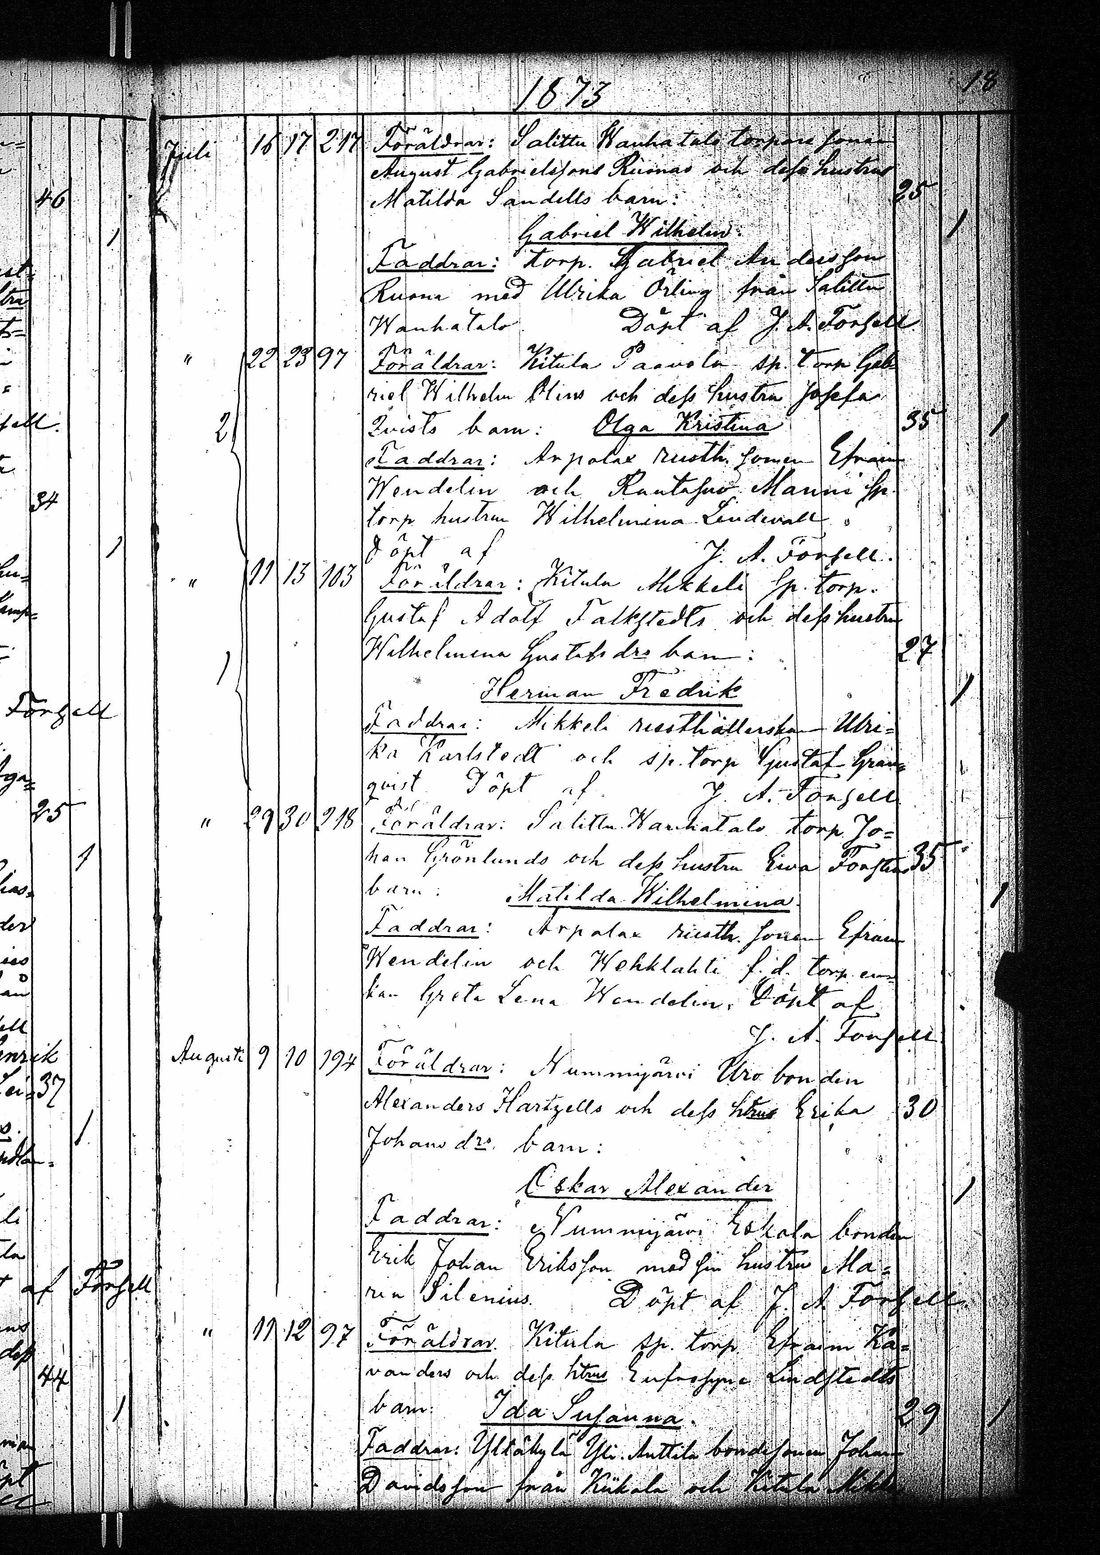 1873
18
Juli 16 17 217 Föräldrar: Salittu Wanhatalo torpare sonen
August Gabrielssons Ruonas och dess hustrus
Matilda Sandells barn: 25
Gabriel Wilhelm. 1
Faddrar: torp. Gabriel Andersson
Ruona med Ulrika Örling från Salittu
Wanhatalo. Döpt af J. A. Forsell
" 22 23 97 Föräldrar: Kitula Paavola sp. torp Gab
riel Wilhelm Olins och dess hustru Josefa
2 Qvists barn: Olga Kristina 35 1
Faddrar: Arpalax rusth. sonen Efraim
Wendelin och Rautasuo Manni sp.
torp hustrun Wilhelmina Lindevall
Döpt af J. A. Forsell.
" 11 13 103 Föräldrar: Kitula Mikkeli sp. torp.
Gustaf Adolf Falkstedts och dess hustru
Wilhelmina Gustafsdrs barn: 27
1 Herman Fredrik 1
Faddrar: Mikkeli rusthållerskan Ulri=
ka Karlstedt och sp. torp Gustaf Gran=
qvist Döpt af J. A. Forsell
" 29 30 218 Föräldrar: Salittu Wanhatalo torp Jo=
han Grönlunds och dess hustru Eiva 35
barn: Matilda Wilhelmina. 1
Faddrar: Arpalax rusth. sonen Efraim
Wendelin och Wehklahti f.d. torp en=
kan Greta Lena Wendelin. Döpt af
J. A. Forsell.
Augusti 9 10 194 Föräldrar: Nummijärvi Uro bonden
Alexanders Hartzells och dess htrus Erika 30
Johansdrs. barn:
Oskar Alexander 1
Faddrar: Nummijärvi Eskola bonden
Erik Johan Eriksson med sin hustru Ma=
ria Silenius. Döpt af J. A. Forsell.
" 11 12 97 Föräldrar. Kitula sp. torp. Efraim Ka=
vanders och dess htrus Lindstedts
barn: Ida Susanna. 29 1
Faddrar: Yli Anttila bondesonen Johan
Davidsson från Kiikala och Kitula
46
1
34
1
Forsell
25
1
enrik
37
1
af Forsell
44
1